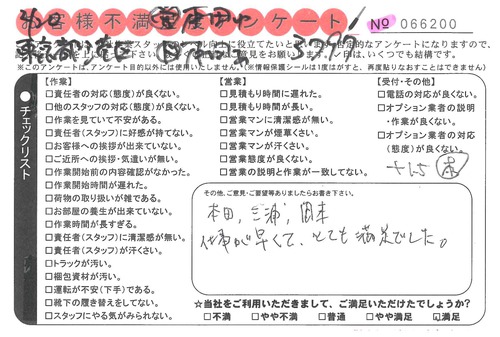 お客様不満度アンケート!
No 066200
※このアンケートは、アンケート目的以外には使用いたしません。(※情報保護シールは1度はがすと、再度貼りなおすことはできません)
チェックリスト
【作業】
□責任者の対応(態度)が良くない。
□他のスタッフの対応(態度)が良くない。
□作業を見ていて不安がある。
□責任者(スタッフ)に好感が持てない。
□お客様への挨拶が出来ていない。
□ご近所への挨拶・気遣いが無い。
□作業開始前の内容確認がなかった。
□作業開始時間が遅れた。
□荷物の取り扱いが雑である。
□お部屋の養生が出来ていない。
□作業時間が長すぎる。
□責任者(スタッフ)に清潔感が無い。
□責任者(スタッフ)が汗くさい。
□トラックが汚い。
□梱包資材が汚い。
□運転が不安(下手)である。
□靴下の履き替えをしてない。
□スタッフにやる気がみられない。
【営業】
□見積もり時間に遅れた。
□見積もり時間が長い。
□営業マンに清潔感が無い。
□営業マンが煙草くさい。
□営業マンが汗くさい。
□営業態度が良くない。
□営業の説明と作業が一致してない。
【受付・その他】
□電話の対応が良くない。
□オプション業者の説明
・作業が良くない。
□オプション業者の対応
(態度)が良くない。
その他、ご意見・ご要望等ありましたらお書き下さい。
本田, 三浦, 岡本
仕事が早くて、とても満足でした。
☆当社をご利用いただきまして、ご満足いただけたでしょうか?
□不満 □やや不満 □普通 □やや満足 ☑満足